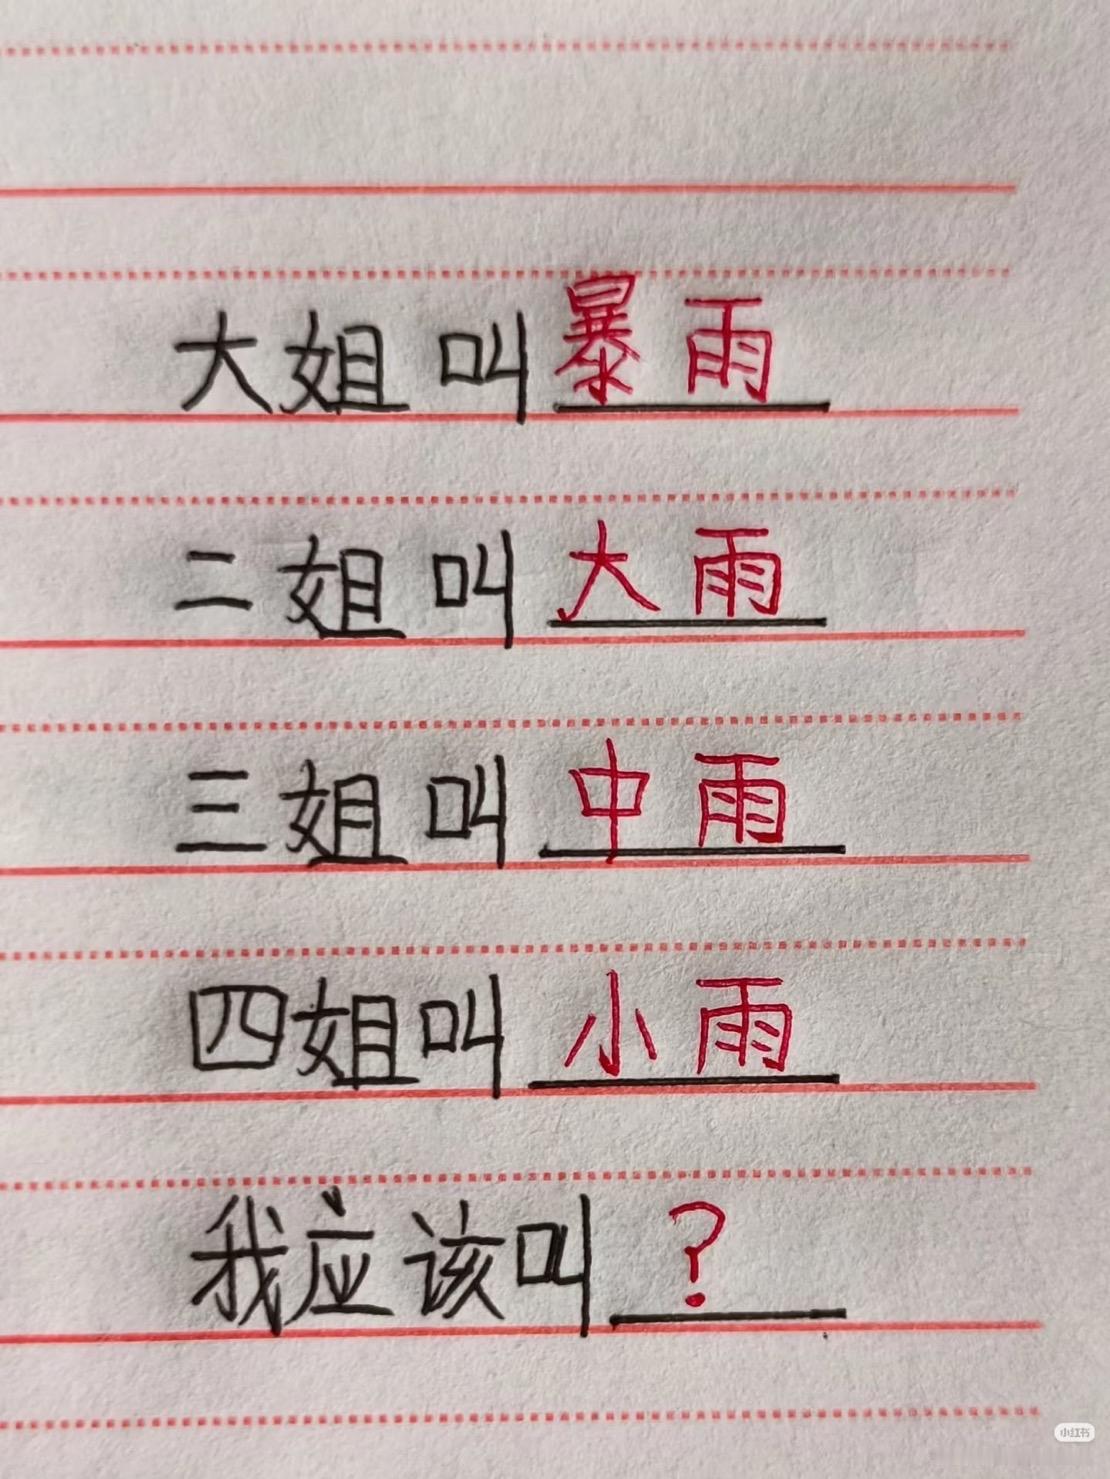 大姐叫暴雨
二姐叫大雨
三姐叫中雨
四姐叫小雨
我应该叫？
小红书